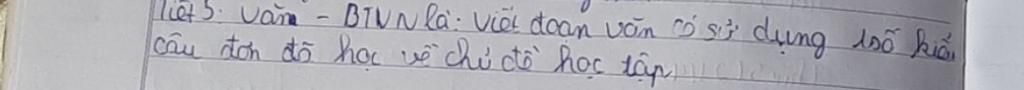 Tiết 5: Văn - BTVN là: Viết đoạn văn có sử dụng 100 kiểu
câu đơn đã học về chủ đề học tập